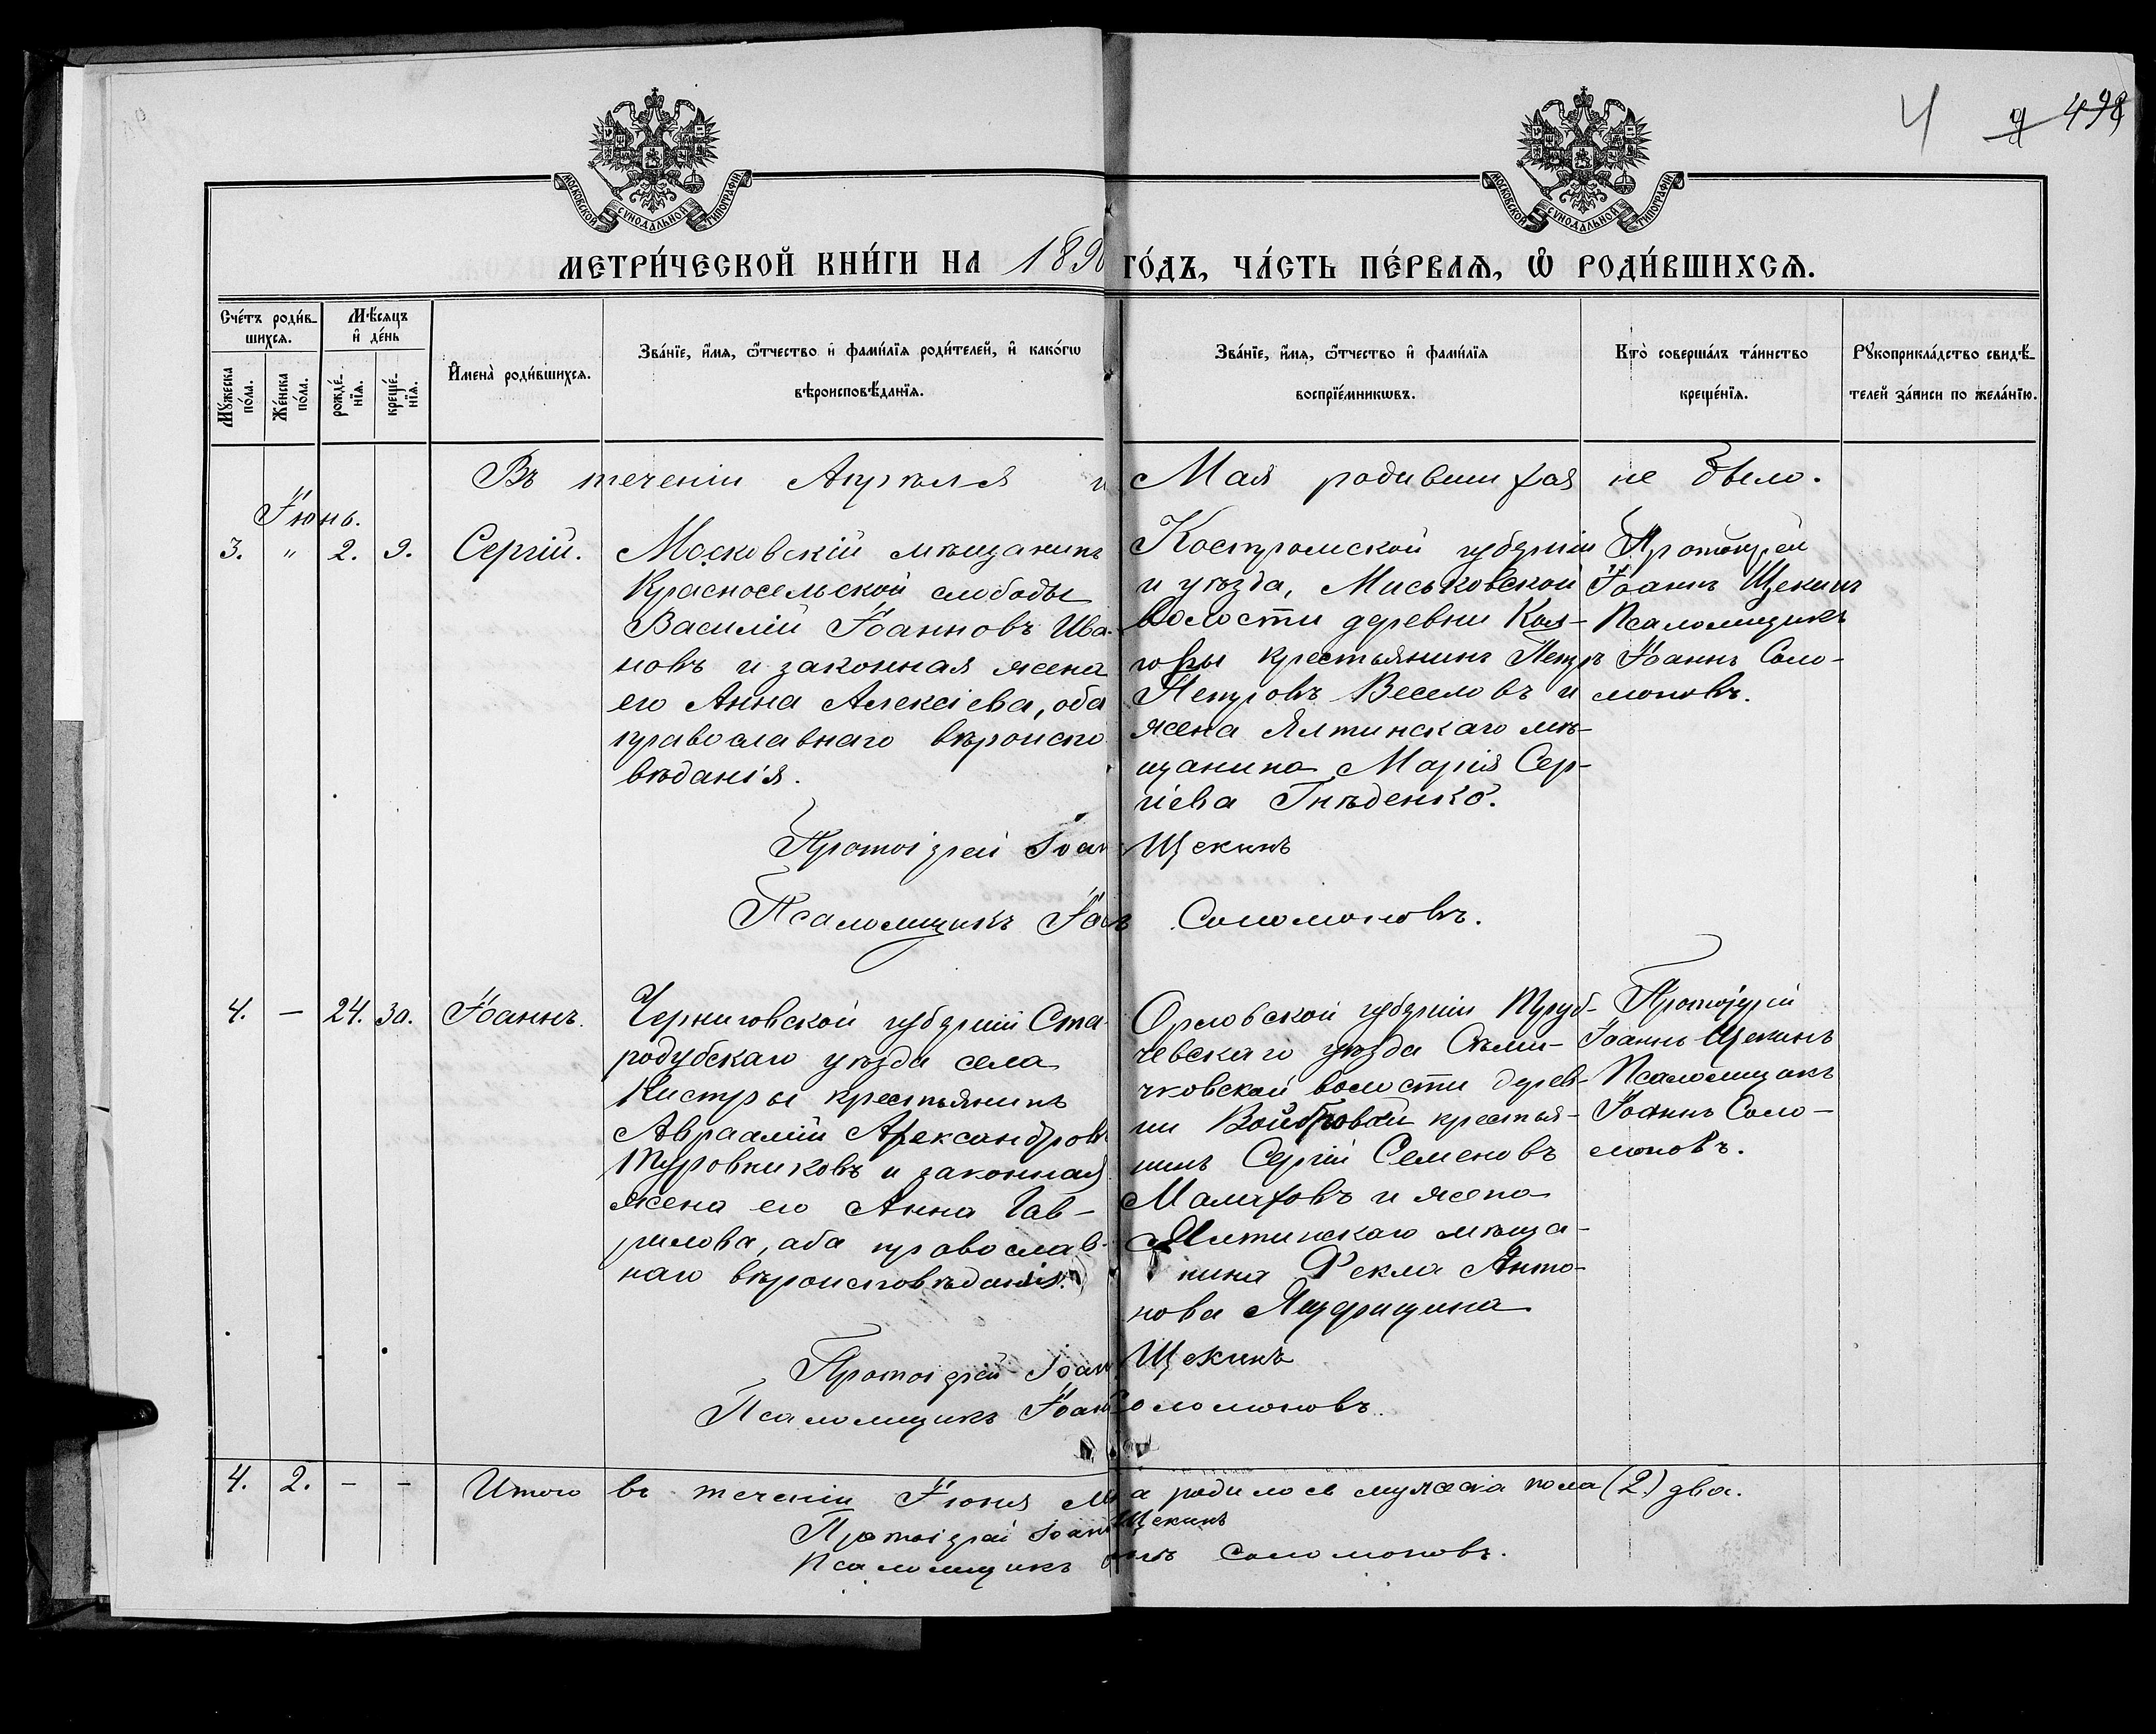 4 9 498
МОСКОВСКОЙ СѴНОДАЛЬНОЙ ТИПОГРАФІИ
МОСКОВСКОЙ СѴНОДАЛЬНОЙ ТИПОГРАФІИ
МЕТРИ́ЧЕСКОЙ КНИ́ГИ НА 1890 ГО́ДЪ, ЧА́СТЬ ПЕ́РВАѦ, Ѡ҆ РОДИ́ВШИХСѦ.
Сче́тъ роди́в-
шихсѧ.
Мꙋ́жеска по́ла.
Же́нска по́ла.
Мѣ́сѧцъ
и҆ де́нь
рожде́-
нїѧ.
креще́-
нїѧ.
И҆мена̀ роди́вшихсѧ.
Зва́нїе, и҆́мѧ, ѻ҆́тчество и҆ фами́лїѧ роди́телей, и҆ како́гѡ
вѣроисповѣ́данїѧ.
Зва́нїе, и҆́мѧ, ѻ҆́тчество и҆ фами́лїѧ
воспрїе́мникѡвъ.
Кто̀ соверша́лъ та́инство
креще́нїѧ.
Рꙋкоприкла́дство свидѣ́-
телей за́писи по жела́нїю.
Въ теченіи Апрѣля и Мая родившихся не было.
Іюнь.
3. " 2. 9. Сергій.
Московскій мѣщанинъ
Красносельской слободы
Василій Іоанновъ Ива-
новъ и законная жена
его Анна Алексіева, оба
православнаго вѣроиспо
вѣданія.
Костромской губерніи
и уѣзда, Миськовской
волости деревни Коя-
горы крестьянинъ Петръ
Петровъ Веселовъ и
жена Ялтинскаго мѣ-
щанина Марія Сер-
гіева Гнѣденко.
Протоіерей
Іоаннъ Щекинъ
Псаломщикъ
Іоаннъ Соло-
моновъ.
Протоіерей Іоан Щекинъ
Псаломщикъ Іоа Соломоновъ.
4. — 24. 30. Іоаннъ.
Черниговской губерніи Ста-
родубскаго уѣзда села
Кистры крестьянинъ
Авраамій Александровъ
Туровниковъ и законная
жена его Анна Гав-
рилова, оба православ-
наго вѣроисповѣданія.
Орловской губерніи Труб-
чевскаго уѣзда Сѣми-
чковской волости дерев-
ни крестья-
нинъ Сергій Семеновъ
Малаховъ и жена
Ялтинскаго мѣща-
нина Ѳекла Анто-
нова
Протоіерей
Іоаннъ Щекинъ
Псаломщикъ
Іоаннъ Соло-
моновъ.
Протоіерей Іоан Щекинъ
Псаломщикъ Іоан Соломоновъ.
4. 2. - - Итого въ теченіи Іюня м а родилось мужеска пола (2.) два.
Протоіерей Іоан Щекинъ
Псаломщикъ Соломоновъ.